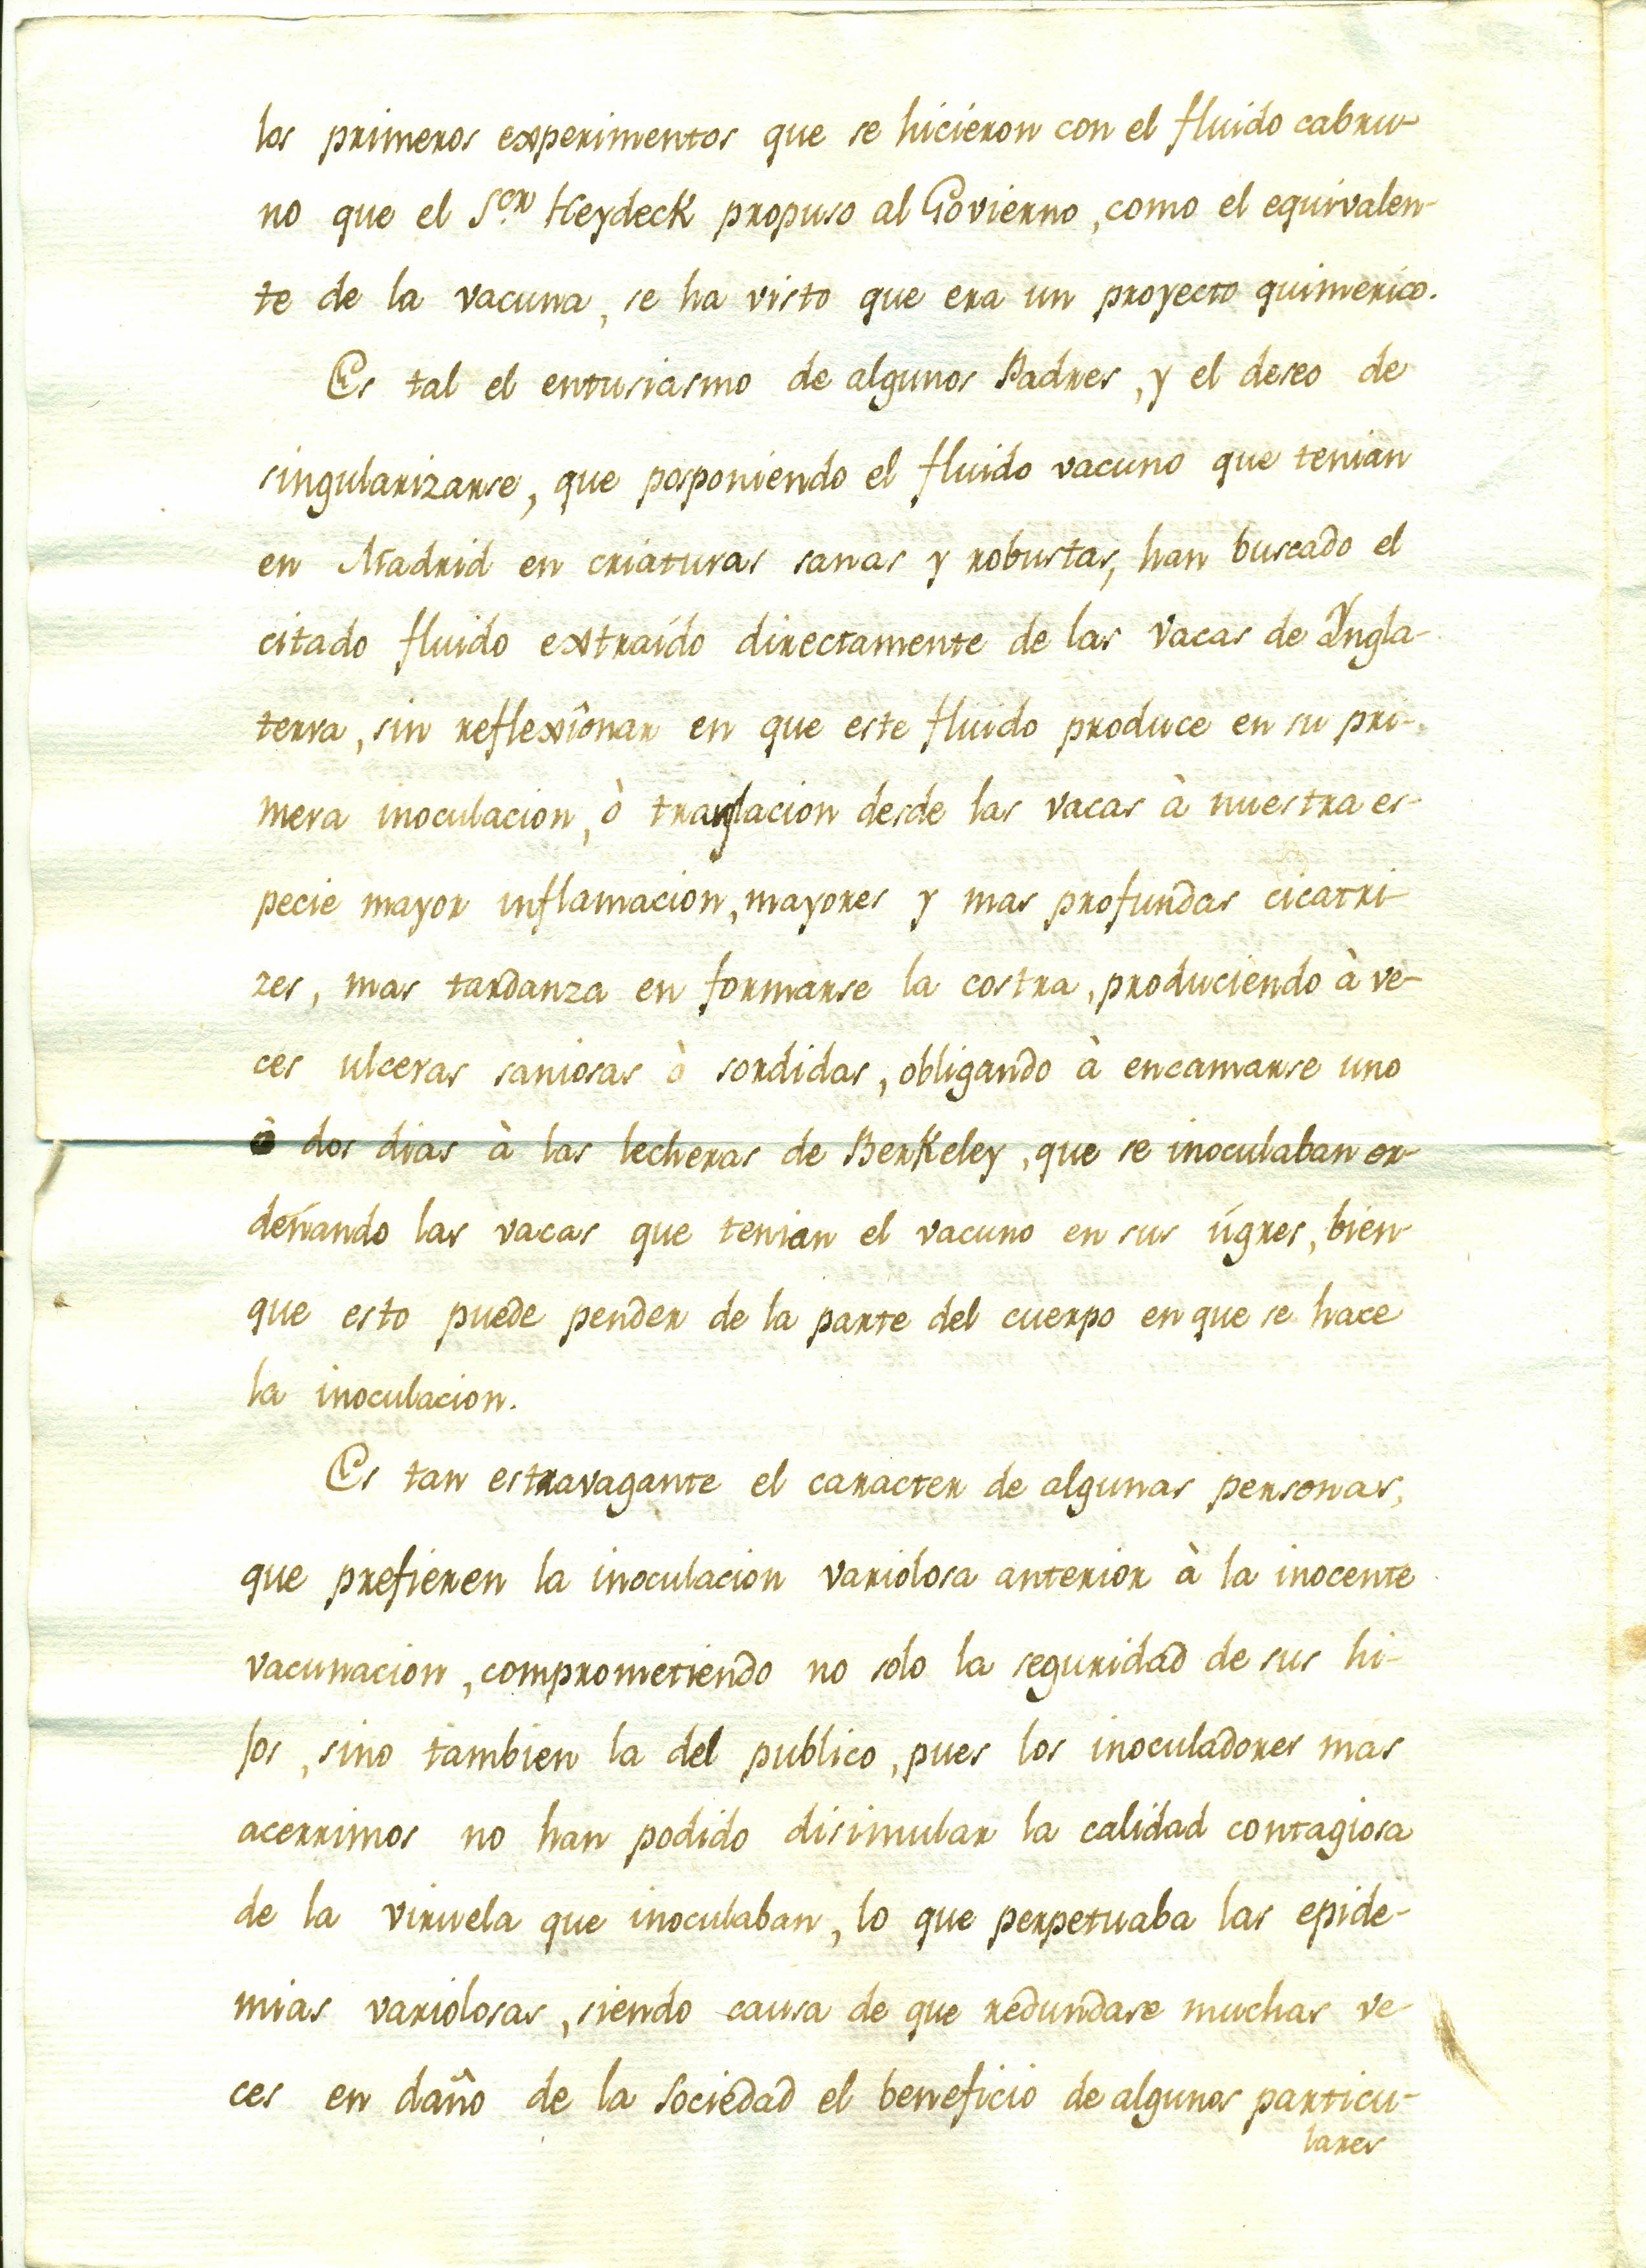 los primeros experimentos que se hicieron con el fluido cabru-
no que el S.or Heydeck propuso al Govierno, como el equivalen-
te de la vacuna, se ha visto que era un proyecto quimerico.
Es tal el entusiasmo de algunos Padres, y el deseo de
singularizarse, que posponiendo el fluido vacuno que tenian
en Madrid en criaturas sanas y robustas, han buscado el
citado fluido extraído directamente de las vacas de Yngla-
terra, sin reflexîonar en que este fluido produce en su pri-
mera inoculacion, ò translacion desde las vacas à nuestra es-
pecie mayor inflamacion, mayores y mas profundas cicatri-
zes, mas tardanza en formarse la costra, produciendo à ve-
ces ulceras saniosas ò sordidas, obligando à encamarse uno
ò dos dias à las lecheras de Berkeley, que se inoculaban or-
deñando las vacas que tenian el vacuno en sus úgres, bien
que esto puede pender de la parte del cuerpo en que se hace
la inoculacion.
Es tan estravagante el caracter de algunas personas,
que prefieren la inoculacion variolosa anterior à la inocente
vacunacion, comprometiendo no solo la seguridad de sus hi-
jos, sino tambien la del publico, pues los inoculadores mas
acerrimos no han podido disimular la calidad contagiosa
de la viruela que inoculaban, lo que perpetuaba las epide-
mias variolosas, siendo causa de que redundase muchas ve-
ces en daño de la sociedad el beneficio de algunos particu-
lares